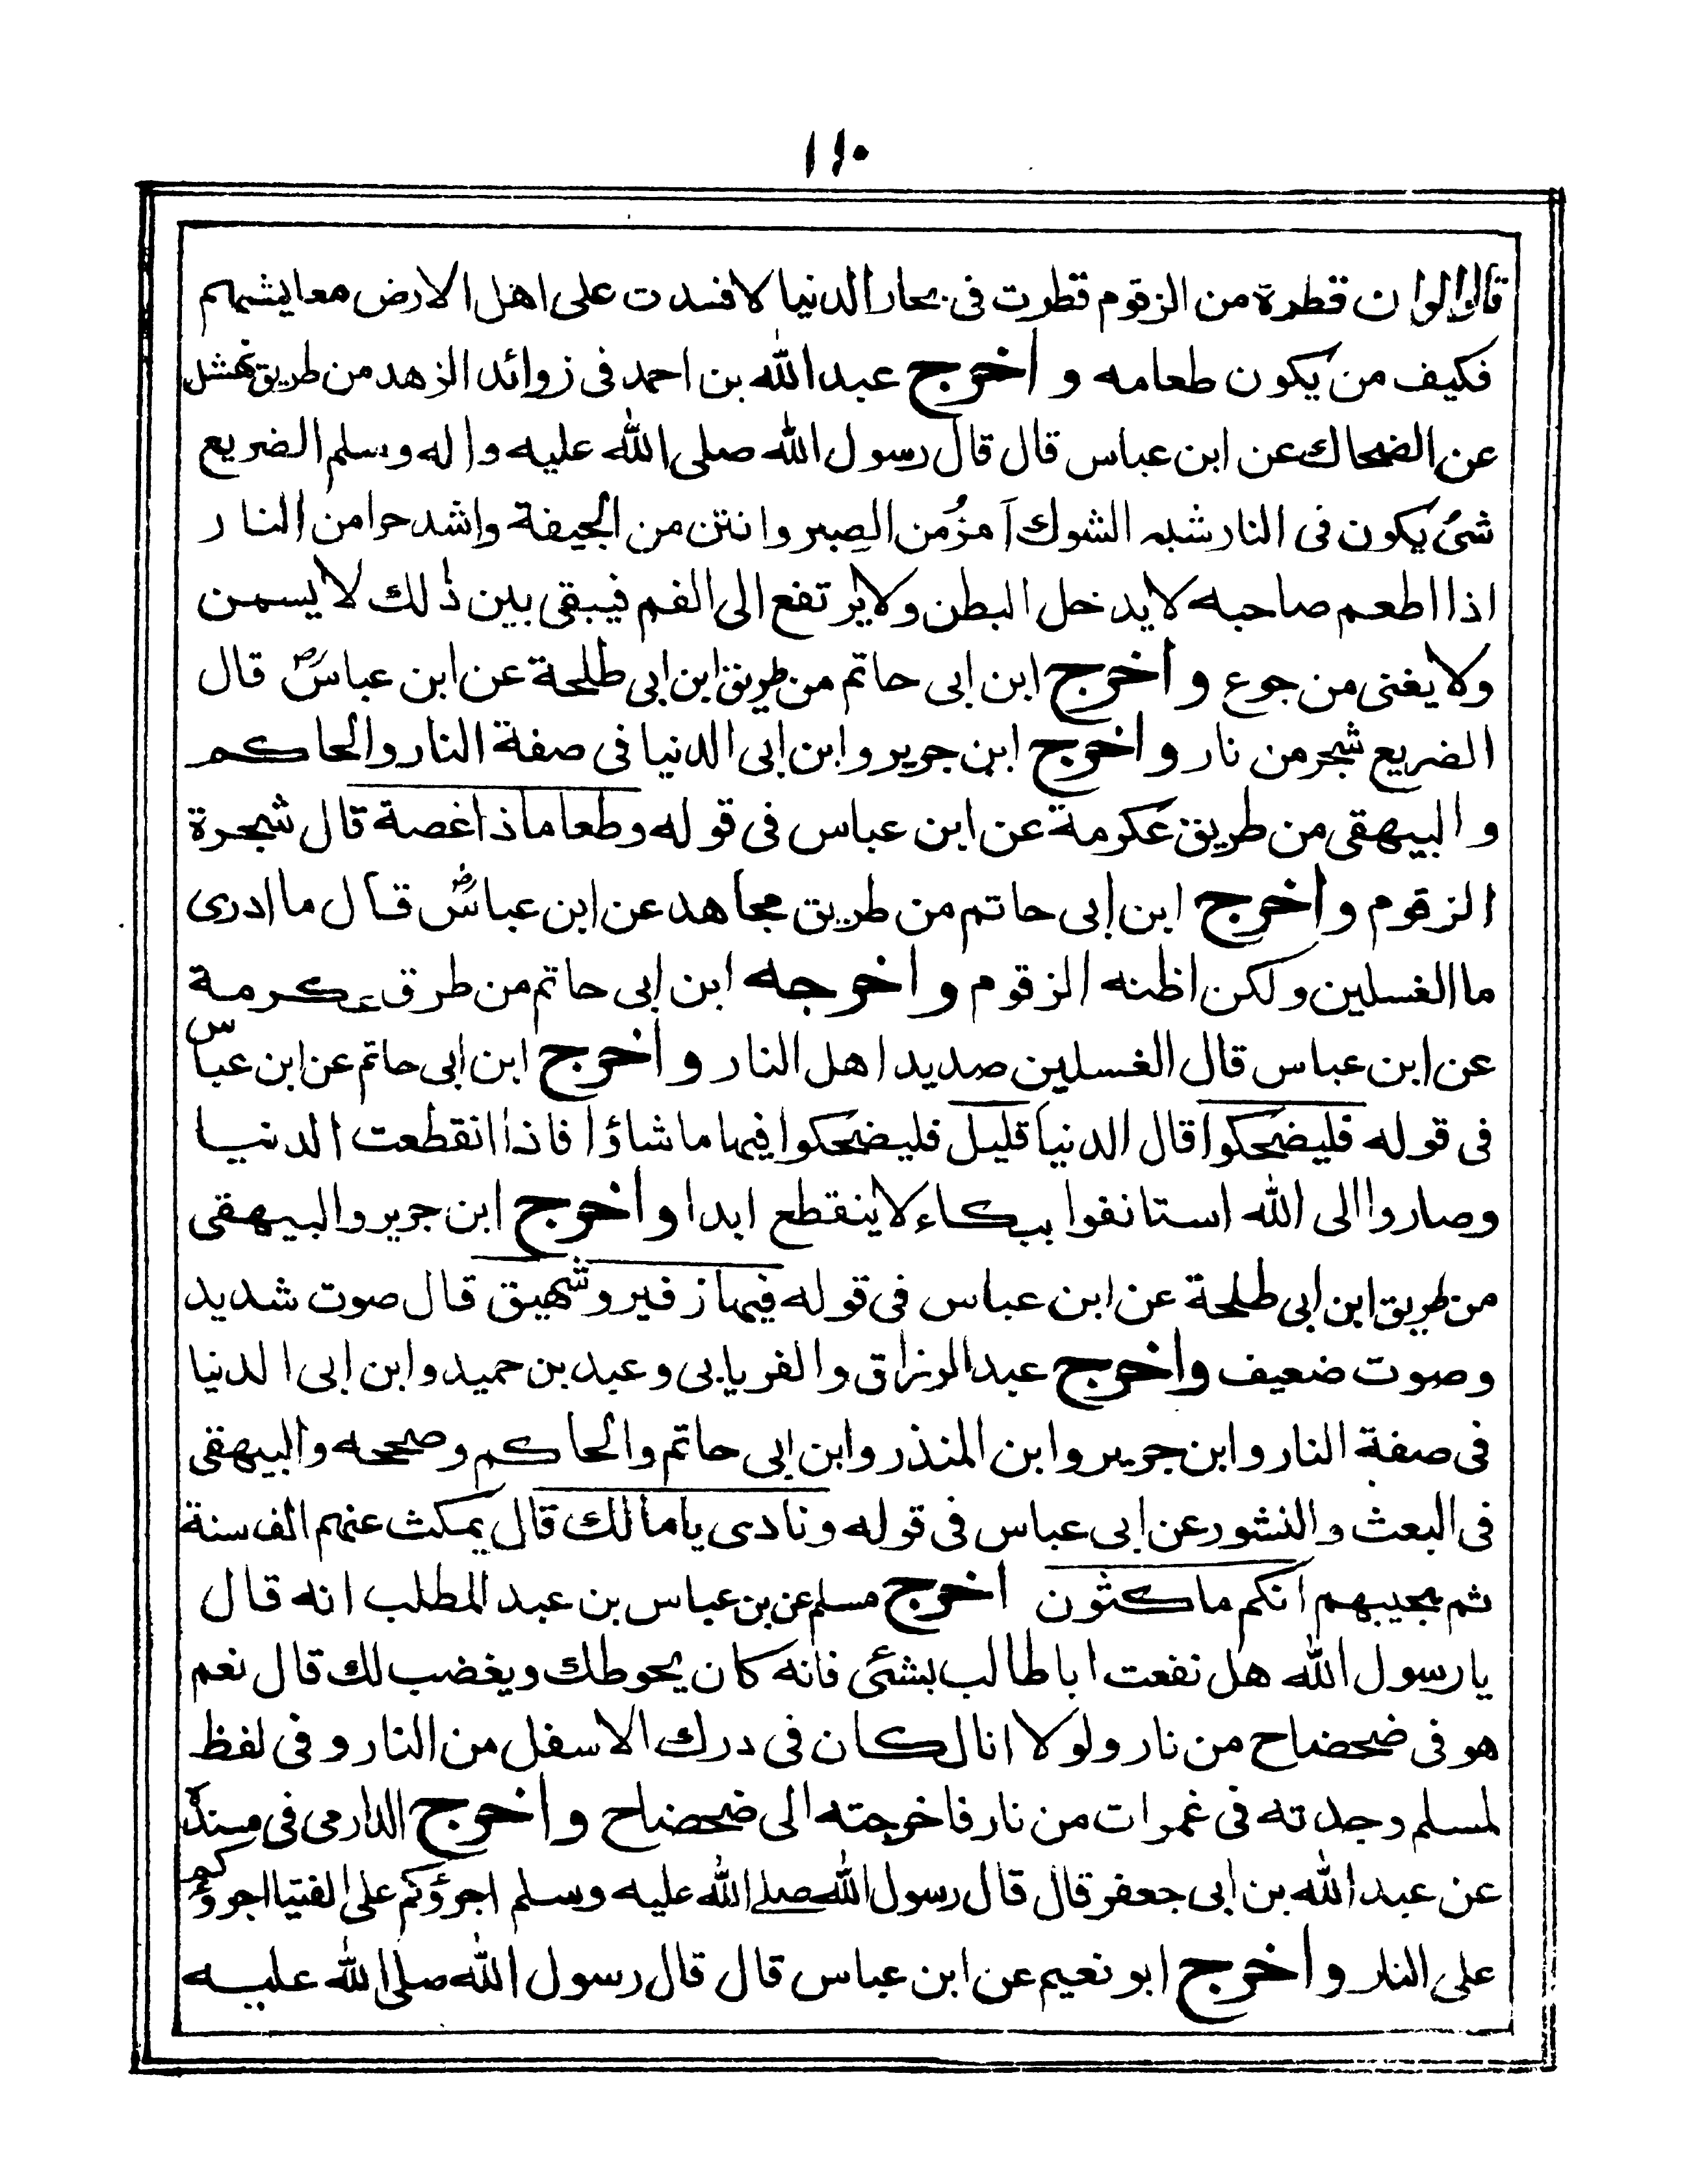 ١١٠
قالوا لوان قطرة من الزقوم قطرت فى بحار الدنيا لافسدت على اهل الارض معايشهم
فكيف من يكون طعامه و اخرج عبد الله بن احمد فى زوائد الزهد من طريق نهشل
عن الضحاك عن ابن عباس قال قال رسول الله صلى الله عليه واله وسلم الضريع
شئ يكون فى النار شبه الشوك اَمَرُّ من الصبر وانتن من الجيفة واشد حرا من النار
اذا اطعم صاحبه لايدخل البطن ولايرتفع الى الفم فيبقى بين ذلك لايسمن
ولايغنى من جوع واخرج ابن ابى حاتم من طريق ابن ابى طلحة عن ابن عباسؓ قال
الضريع شجر من نار واخرج ابن جرير وابن ابى الدنيا فى صفة النار والحاكم
والبيهقى من طريق عكرمة عن ابن عباس فى قوله وطعاما ذا غصة قال شجرة
الزقوم واخرج ابن ابى حاتم من طريق مجاهد عن ابن عباسؓ قال ما ادرى
ما الغسلين ولكن اظنه الزقوم واخرجه ابن ابى حاتم من طرق عكرمة
عن ابن عباس قال الغسلين صديد اهل النار واخرج ابن ابى حاتم عن ابن عباس
فى قوله فليضحكوا قال الدنيا قليل فليضحكوا فيها ما شاؤا فاذا انقطعت الدنيا
وصاروا الى الله استانفوا ببكاء لاينقطع ابدا واخرج ابن جرير والبيهقى
من طريق ابن ابى طلحة عن ابن عباس فى قوله فيها زفير وشهيق قال صوت شديد
وصوت ضعيف واخرج عبد الرزاق والفريابى وعبد بن حميد وابن ابى الدنيا
فى صفة النار وابن جرير وابن المنذر وابن ابى حاتم والحاكم وصححه والبيهقى
فى البعث والنشور عن ابى عباس فى قوله ونادى يامالك قال يمكث عنهم الف سنة
ثم يجيبهم انكم ماكثون اخرج مسلم عن بن عباس بن عبد المطلب انه قال
يا رسول الله هل نفعت ابا طالب بشئى فانه كان يحوطك ويغضب لك قال نعم
هو فى ضحضاح من نار ولولا انا لكان فى درك الاسفل من النار وفى لفظ
لمسلم وجدته فى غمرات من نار فاخرجته الى ضحضاح واخرج الدارمى فى مسنده
عن عبد الله بن ابى جعفر قال قال رسول الله صلے الله عليه وسلم اجرؤكم على الفتيا اجرؤكم
على النار واخرج ابو نعيم عن ابن عباس قال قال رسول الله صلى الله عليه